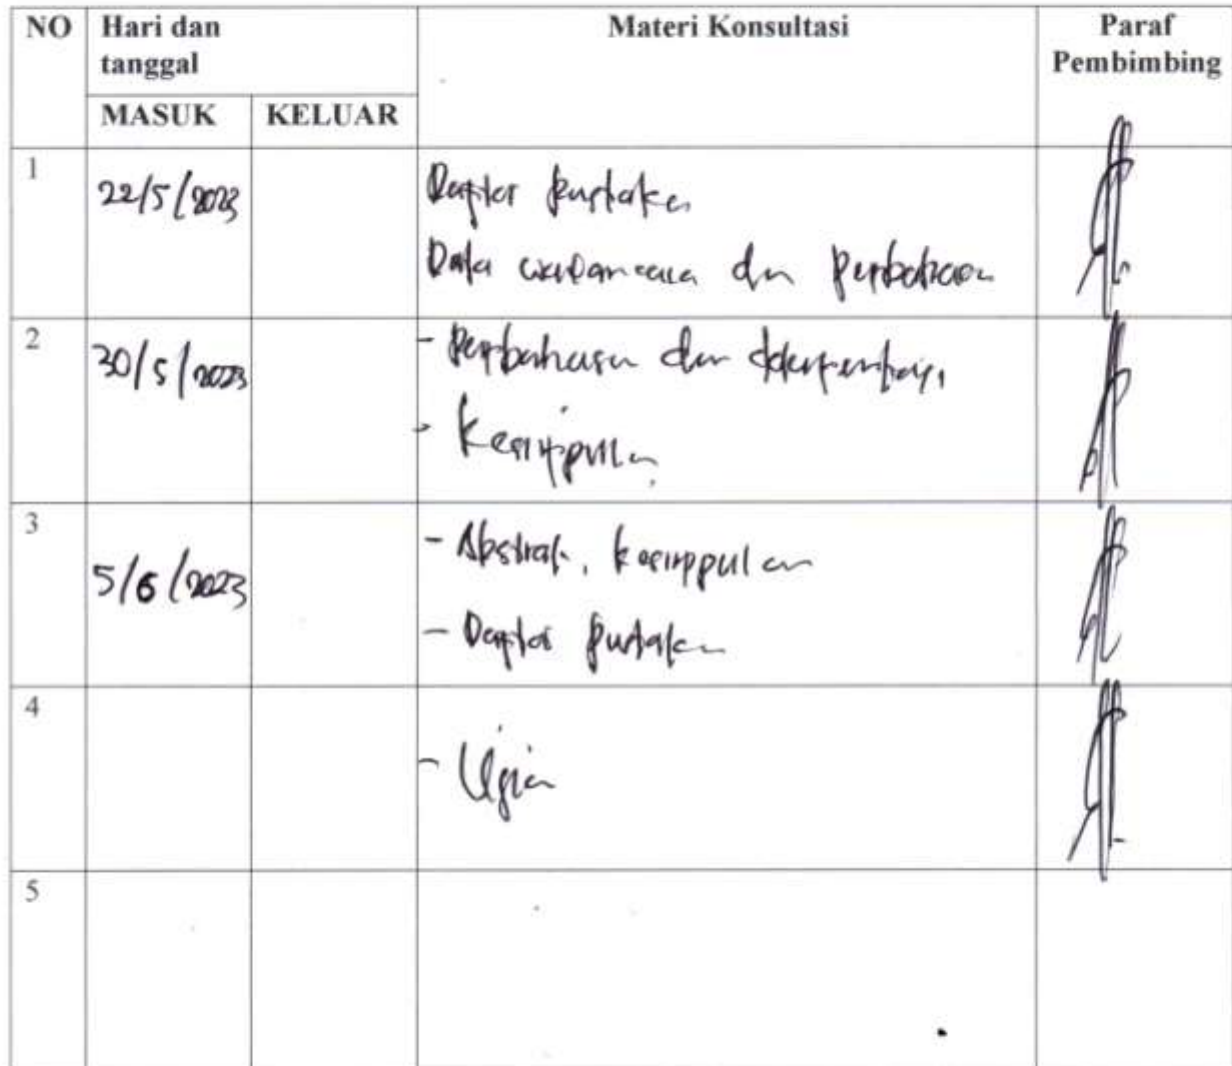 NO Hari dan tanggal Materi Konsultasi Paraf Pembimbing
MASUK KELUAR
1 22/5/2023 Daftar Pustaka
Data wawancara dan Pembahasan
2 30/5/2023 - Pembahasan dan
- Kesimpulan
3 5/6/2023 - Abstrak, kesimpulan
- Daftar Pustaka
4 - Ujian
5